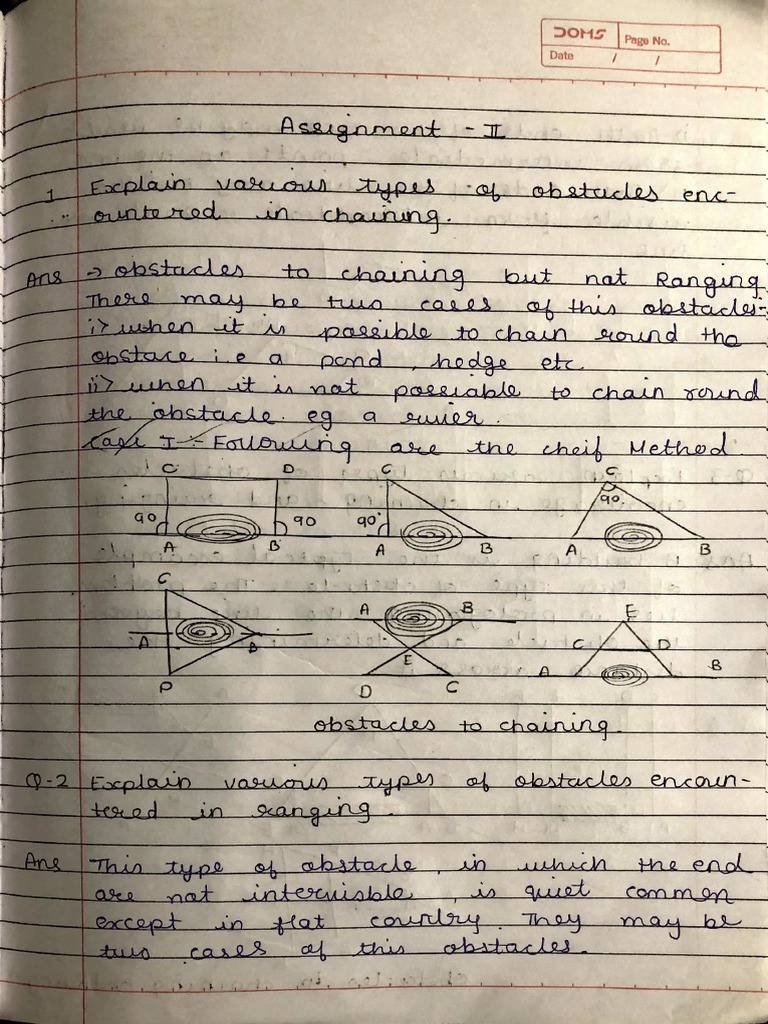 DOMS
Page No.
Date / /
Assignment - II
1 Explain various types of obstacles enc-
ountered in chaining.
Ans → obstacles to chaining but not Ranging
There may be two cases of this obstacles:-
i> when it is possible to chain round the
obstace i.e a pond, hedge etc.
ii> when it is not possiable to chain round
the obstacle. eg a river.
Case I :- Following are the cheif Method.
C D C C
90 90 90° 90
A B A B A B
C A B E
A B E C D
A B
P D C
obstacles to chaining.
Q-2 Explain various types of obstacles encoun-
tered in ranging.
Ans This type of obstacle, in which the end
are not intervisble, is quiet common
except in flat country. They may be
two cases of this obstacles.